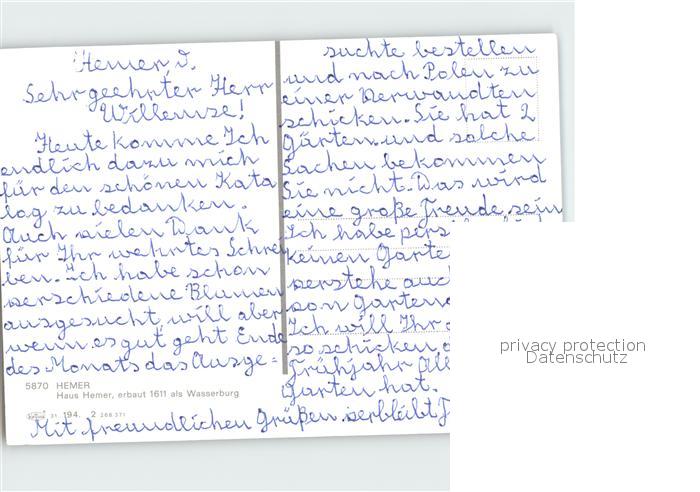 Hemer, d.
Sehr geehrter Herr
Willemse!
Heute komme Ich
endlich dazu mich
für den schönen Kata
log zu bedanken.
Auch vielen Dank
für Ihr wehrtes Schrei
ben. Ich habe schon
verschiedene Blumen
ausgesucht, will aber
wenn es gut geht Ende
des Monats das Ausge=
suchte bestellen
und nach Polen zu
einer Verwandten
schicken. Sie hat 2
Gärten und solche
Sachen bekommen
Sie nicht. Das wird
eine große Freude sein
Ich habe
keinen Garten
verstehe auch
von Garten
Ich will Ihr
so schicken
Frühjahr
Garten hat.
Mit freundlichen Grüßen verbleibt
5870 HEMER
Haus Hemer, erbaut 1611 als Wasserburg
31 194. 2 268 371
privacy protection
Datenschutz